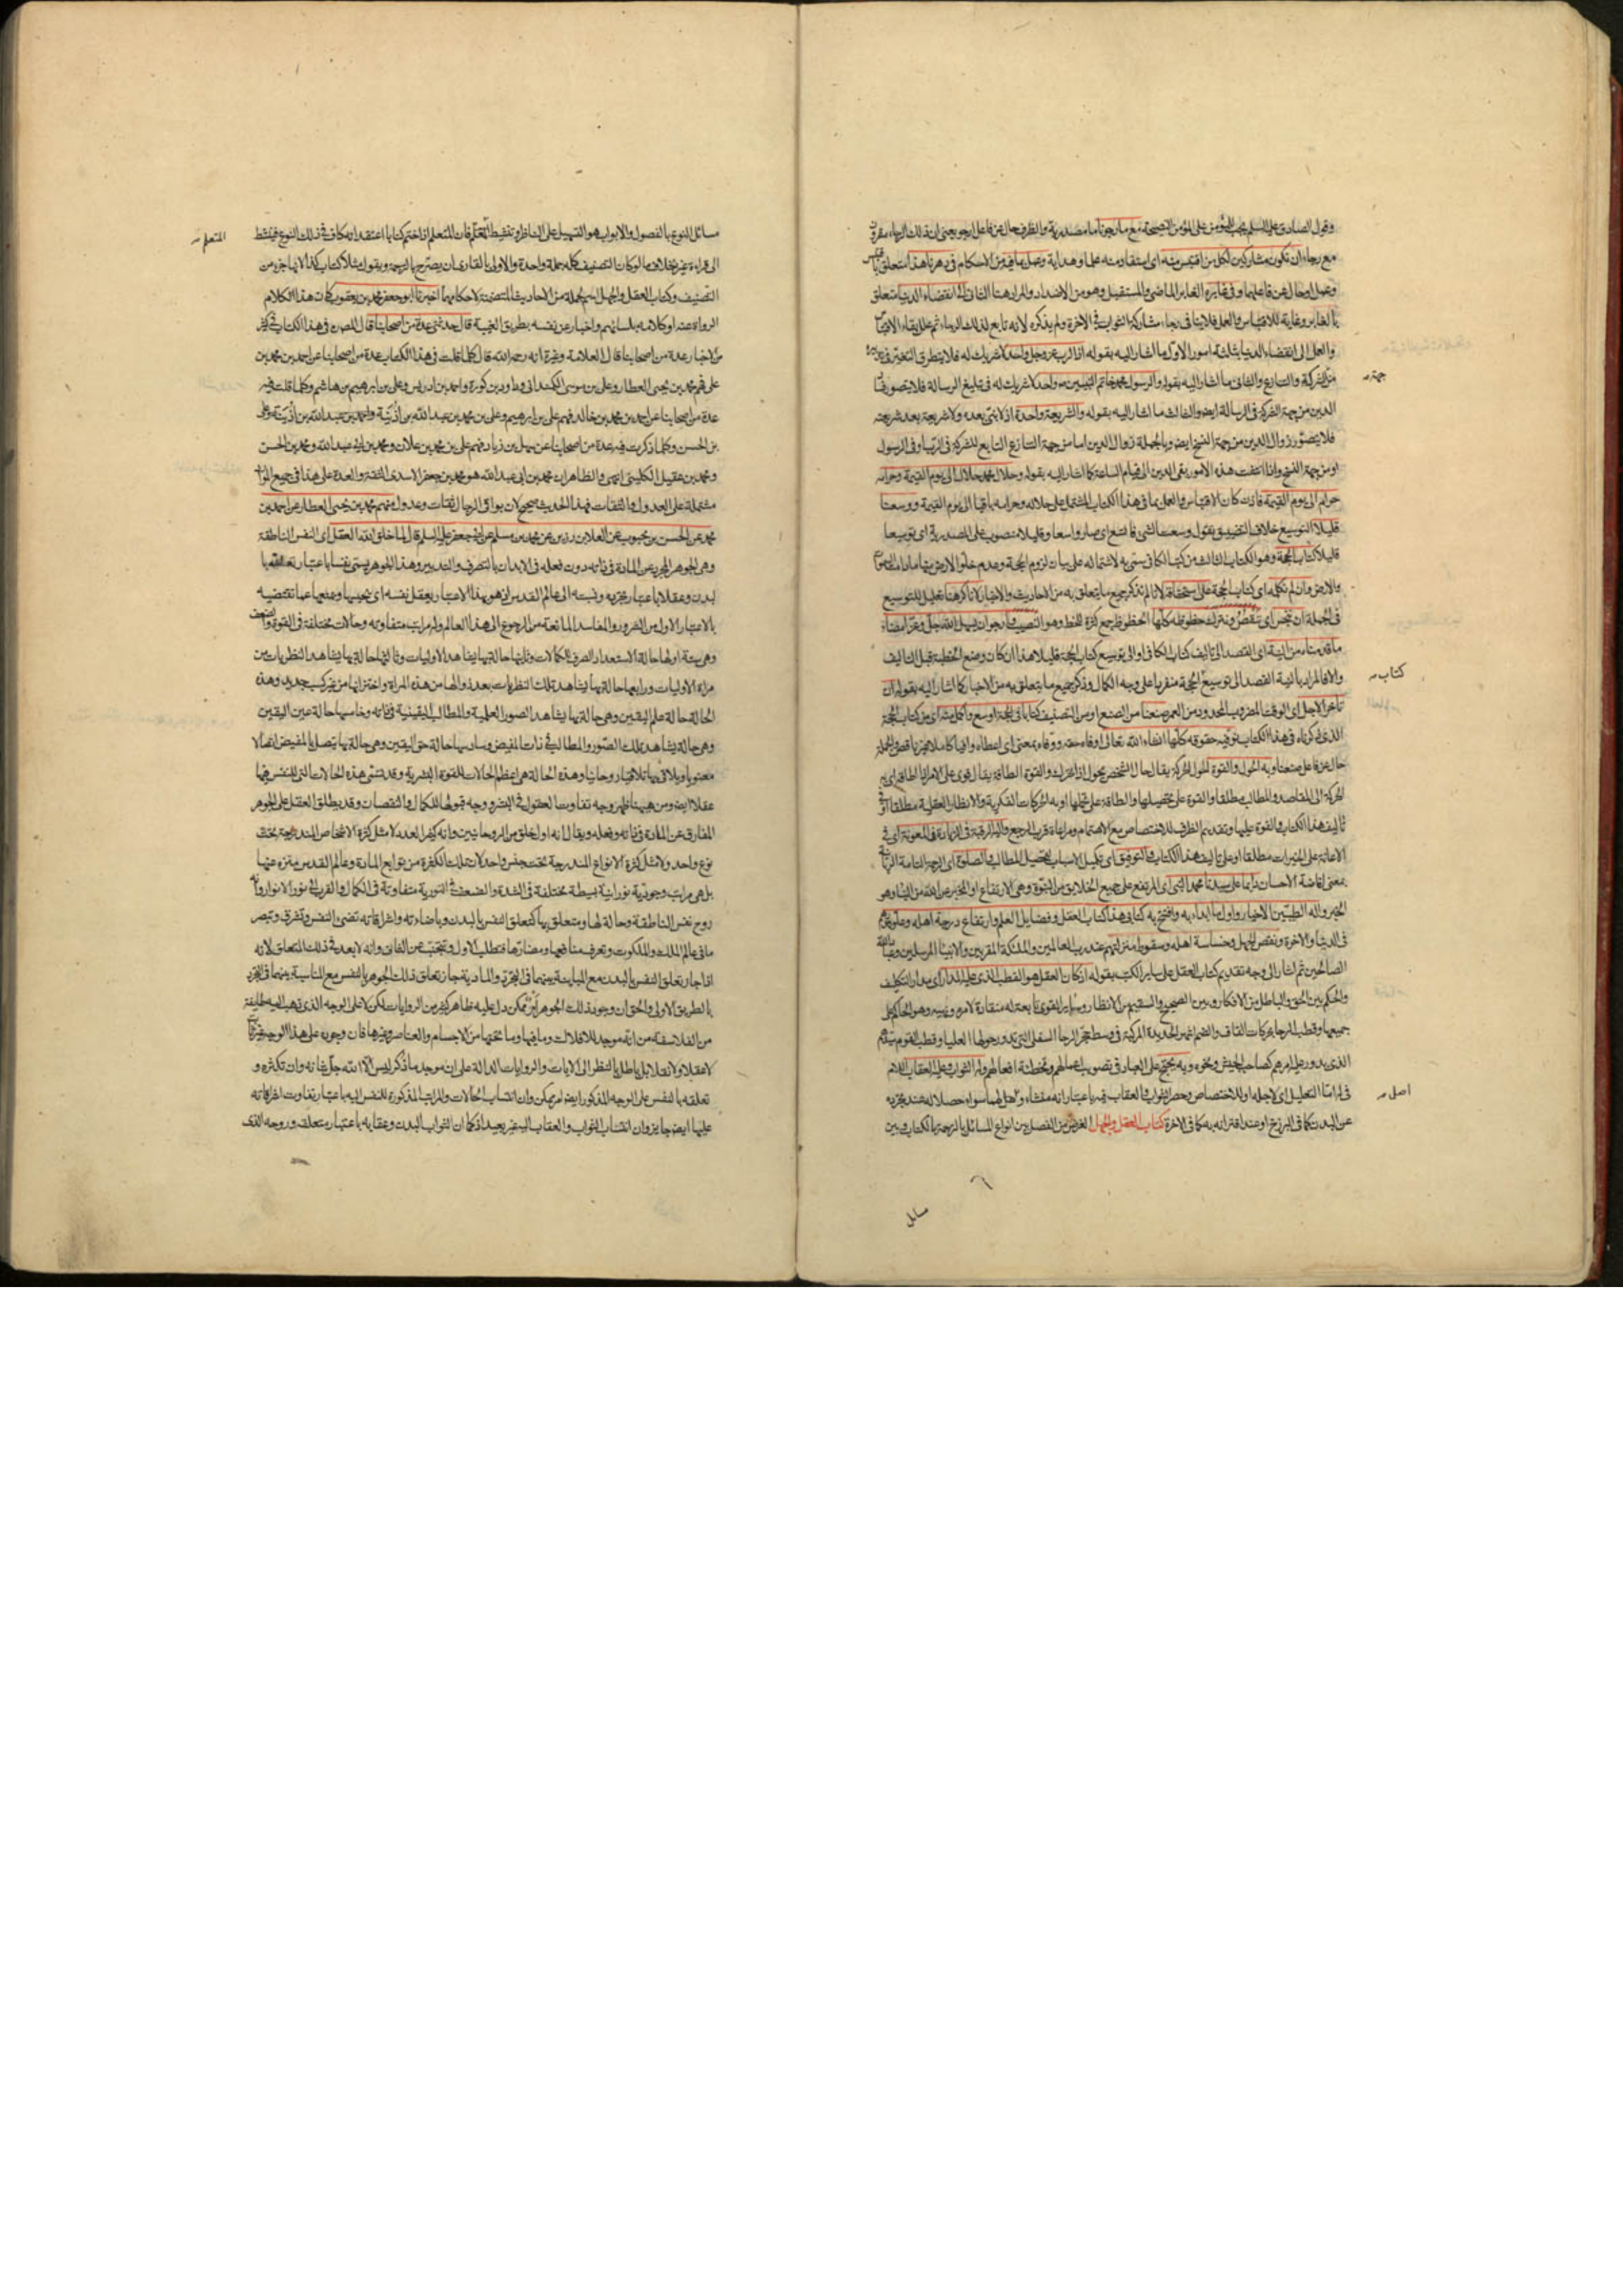 وقول الصادق عليه السلم يجب للمؤمن على المؤمن النصيحة مع ما رجونا ما مصدرية والظرف حال عن فاعل
مع رجاء ان نكون مشاركين لكل من اقتبس منه اى استفاد منه علما وهداية وعمل بما فيه من الاحكام فى دهرنا هذا
وعمل او حال عن فاعلهما وفى غابره الغابر الماضى والمستقبل وهو من الاضداد والمراد هنا الثانى الى انقضاء الدنيا متعلق
بالغابر وغاية للاقتباس والعمل فلا ينافى رجاء مشاركة الثواب فى الاخرة ولم يذكره لانه تابع لذلك الرجاء ثم علل بقاء الاقتباس
والعمل الى انقضاء الدنيا بثلثة امور الاول ما اشار اليه بقوله اذ الرب عز وجل واحد لا شريك له فلا يتطرق التغير فى
من الشركة والتنازع والثانى ما اشار اليه بقوله والرسول محمد خاتم النبيين واحد لا شريك له فى تبليغ الرسالة فلا يتصور
الدين من جهة الشركة فى الرسالة ايضا والثالث ما اشار اليه بقوله والشريعة واحدة اذ لا نبى بعده ولا شريعة بعد شريعته
فلا يتصور زوال الدين من جهة النسخ ايضا وبالجملة زوال الدين اما من جهة التنازع التابع للشركة فى الرب او فى الرسول
او من جهة النسخ واذا انتفت هذه الامور بقى الدين الى قيام الساعة كما اشار اليه بقوله وحلال محمد حلال الى يوم القيمة وحرامه
حرام الى يوم القيمة فاذن كان الاقتباس والعمل بما فى هذا الكتاب المشتمل على حلاله وحرامه باقيا الى يوم القيمة ووسعنا
قليلا التوسيع خلاف التضييق تقول وسعت الشئ فاتسع اى صار واسعا وقليلا منصوب على المصدرية اى توسيعا
قليلا كتاب الحجة وهو الكتاب الثالث من كتب الكافى سمى به لاشتماله على بيان لزوم الحجة وعدم خلو الارض منها
والارض وان لم نكمله اى كتاب الحجة على استحقاقه لانا لم نذكر جميع ما يتعلق به من الاحاديث والاخبار لانا كرهنا تعليل للتوسيع
فى الجملة ان نبخس اى ننقص ونترك حظوظه كلها الحظوظ جمع كثرة للحظ وهو النصيب وارجو ان يسهل الله جل وعز امضاء
ما قدمناه من النية اى القصد الى تاليف كتاب الكافى او الى توسيع كتاب الحجة قليلا هذا ان كان وضع الخطبة قبل التاليف
والا فالمراد بالنية القصد الى توسيع الحجة منفردا على وجه الكمال وذكر جميع ما يتعلق به من الاخبار كما اشار اليه بقوله ان
تاخر الاجل اى الوقت المضروب المحدود من العمر صنعنا من الصنع او من التصنيف كتابا فى الحجة اوسع واكمل منه اى من كتاب الحجة
الذى ذكرناه فى هذا الكتاب نوفيه حقوقه كلها انشاء الله تعالى اوفاه حقه ووفاه بمعنى اى اعطاه وافيا كاملا غير ناقص والجملة
حال عن فاعل صنعنا وبه الحول والقوة الحول الحركة يقال حال الشخص يحول اذا تحرك والقوة الطاقة يقال قوى على الامر اذا اطاقه اى به
الحركة الى المقاصد والمطالب مطلقا والقوة على تحصيلها والطاقة على تحملها او به الحركات الفكرية والانظار العقلية مطلقا او فى
تاليف هذا الكتاب والقوة عليها وتقديم الظرف للاختصاص مع الاهتمام ومراعاة قرب المرجع واليه الرغبة فى الزيادة فى المعونة اى فى
الاعانة على الخيرات مطلقا او على تاليف هذا الكتاب والتوفيق اى تكميل الاسباب لتحصيل المطالب والصلوة اى الرحمة التامة
بمعنى افاضة الاحسان دائما على سيدنا محمد النبى اى المرتفع على جميع الخلايق من النبوة وهى الارتفاع او المخبر عن الله من النبأ وهو
الخبر واله الطيبين الاخيار واول ما ابدء به وافتتح به كتابى هذا كتاب العقل وفضايل العلم وارتفاع درجة اهله وعلو قدرهم
فى الدنيا والاخرة ونقص الجهل وخساسة اهله وسقوط منزلتهم عند رب العالمين والملئكة المقربين والانبياء المرسلين
الصالحين ثم اشار الى وجه تقديم كتاب العقل على ساير الكتب بقوله اذ كان العقل هو القطب الذى عليه المدار اى مدار التكليف
والحكم بين الحق والباطل من الافكار وبين الصحيح والسقيم من الانظار وساير القوى تابعة له منقادة لامره ونهيه وهو الحاكم على
جميعها وقطب الرحا بحركات القاف والضم اشهر الحديدة المركبة فى وسط حجر الرحا السفلى التى تدور حولها العليا وقطب القوم سيدهم
الذى يدور عليه امرهم كصاحب الجيش ونحوه وبه يحتج على العباد فى تصويب اعمالهم وتخطئة افعالهم وله الثواب وعليه العقاب اللام
فى له اما للتعليل اى لاجله او للاختصاص وحصر الثواب والعقاب فيه باعتبار انه منشاء واهل لهما سواء حصلا له عند تجرده
عن البدن كما فى البرزخ او عند اقترانه به كما فى الاخرة كتاب العقل والجهل الغرض من الفصل بين انواع المسائل بالترجمة بالكتاب وبين
جهة
كتاب
اصل
مسائل
مسائل النوع بالفصول والابواب هو التسهيل على الناظر وتنشيط المتعلم فان المتعلم اذا ختم كتابا اعتقد انه كاف فى ذلك النوع فينشط
الى قراءة غيره بخلاف ما لو كان التصنيف كله جملة واحدة والاولى بالقارى ان يصرح بالترجمة ويقول مثلا كتاب كذا لانها جزء من
التصنيف وكتاب العقل والجهل اسم لجملة من الاحاديث المتضمنة لاحكامهما اخبرنا ابو جعفر محمد بن يعقوب كان هذا الكلام
الرواة عنه او كلامه بلسانهم واخبار عن نفسه بطريق الغيبة قال حدثنى عدة من اصحابنا قال المصنف فى هذا الكتاب فى كثير
من الاخبار عدة من اصحابنا قال العلامة وغيره انه رحمه الله قال كلما قلت فى هذا الكتاب عدة من اصحابنا عن احمد بن محمد بن
على فهم محمد بن يحيى العطار وعلى بن موسى الكمندانى وداود بن كورة واحمد بن ادريس وعلى بن ابرهيم بن هاشم وكلما قلت فيه
عدة من اصحابنا عن احمد بن محمد بن خالد فهم على بن ابرهيم وعلى بن محمد بن عبد الله بن اذينة واحمد بن عبد الله بن اذينة وعلى
بن الحسن وكلما ذكرت فيه عدة من اصحابنا عن سهل بن زياد فهم على بن محمد بن علان ومحمد بن ابى عبد الله ومحمد بن الحسن
ومحمد بن عقيل الكلينى انتهى والظاهر ان محمد بن ابى عبد الله هو محمد بن جعفر الاسدى الثقة والعدة على هذا فى جميع
مشتملة على العدول والثقات فهذا الحديث صحيح لان بواقى الرجال ثقات وعدول ومنهم محمد بن يحيى العطار عن احمد بن
محمد عن الحسن بن محبوب عن العلا بن رزين عن محمد بن مسلم عن ابى جعفر عليه السلم قال لما خلق الله العقل اى النفس الناطقة
وهى الجوهر المجرد عن المادة فى ذاته دون فعله فى الابدان بالتصرف والتدبير وهذا الجوهر يسمى نفسا باعتبار تعلقه با
لبدن وعقلا باعتبار تجرده ونسبته الى عالم القدس اذ هو بهذا الاعتبار يعقل نفسه اى يحبسها ويمنعها عما تقتضيه
بالاعتبار الاول من الشرور والمفاسد المانعة من الرجوع الى هذا العالم وله مراتب متفاوتة وحالات مختلفة فى القوة والضعف
وهى ستة اولها حالة الاستعداد الصرف للكمالات وثانيها حالة بها يشاهد الاوليات وثالثها حالة بها يشاهد النظريات من
مراة الاوليات ورابعها حالة بها يشاهد تلك النظريات بعد زوالها من هذه المراة واختزانها من غير كسب جديد وهذه
الحالة حالة علم اليقين وهى حالة بها يشاهد الصور العلمية والمطالب اليقينية فى ذاته وخامسها حالة عين اليقين
وهى حالة يشاهد تلك الصور والمطالب فى ذات المفيض وسادسها حالة حق اليقين وهى حالة بها يتصل بالمفيض اتصالا
معنويا ويلاقى بها تلاقيا روحانيا وهذه الحالة هى اعظم الحالات للقوة البشرية وقد تسمى هذه الحالات التى للنفس فيها
عقلا ايضا ومن ههنا ظهر وجه تفاوت العقول فى البشر ووجه قبولها للكمال والنقصان وقد يطلق العقل على الجوهر
المفارق عن المادة فى ذاته وفعله ويقال انه اول خلق من الروحانيين وانه كثير العدد لا مثل كثرة الاشخاص المندرجة تحت
نوع واحد ولا مثل كثرة الانواع المندرجة تحت جنس واحد لان تلك الكثرة من توابع المادة وعالم القدس منزه عنها
بل هى مراتب وجودية نورانية بسيطة مختلفة فى الشدة والضعف فى النورية متفاوتة فى الكمال والقرب الى نور الانوار وانه
روح نفس الناطقة وحالة لها ومتعلق بها كتعلق النفس بالبدن وباضاءته واشراقاته تضئ النفس وتشرق وتبصر
ما فى عالم الملك والملكوت وتعرف منافعها ومضارها فتطلب الاول وتجتنب عن الثانى وانه لا بعد فى ذلك التعلق لانه
اذا جاز تعلق النفس بالبدن مع المباينة بينهما فى التجرد والمادية فجاز تعلق ذلك الجوهر بالنفس مع المناسبة بينهما فى التجرد
بالطريق الاولى والحق ان وجود ذلك الجوهر امر ممكن دل عليه ظاهر كثير من الروايات لكن لا على الوجه الذى ذهب اليه طايفة
من الفلاسفة من انه موجد للافلاك وما فيها وما تحتها من الاجسام والعناصر وغيرها فان وجوده على هذا الوجه
لا عقلا ولا نقلا بل باطل بالنظر الى الايات والروايات الدالة على ان موجد ما ذكر ليس الا الله جل شانه وان تكثره و
تعلقه بالنفس على الوجه المذكور ايضا امر ممكن وان انتساب الحالات والمراتب المذكورة للنفس اليه باعتبار تفاوت اشراقاته
عليها ايضا جايز وان انتساب الثواب والعقاب اليه غير بعيد اذ كما ان الثواب البدن وعقابه باعتبار متعلقه وروحه الذى
المتعلم